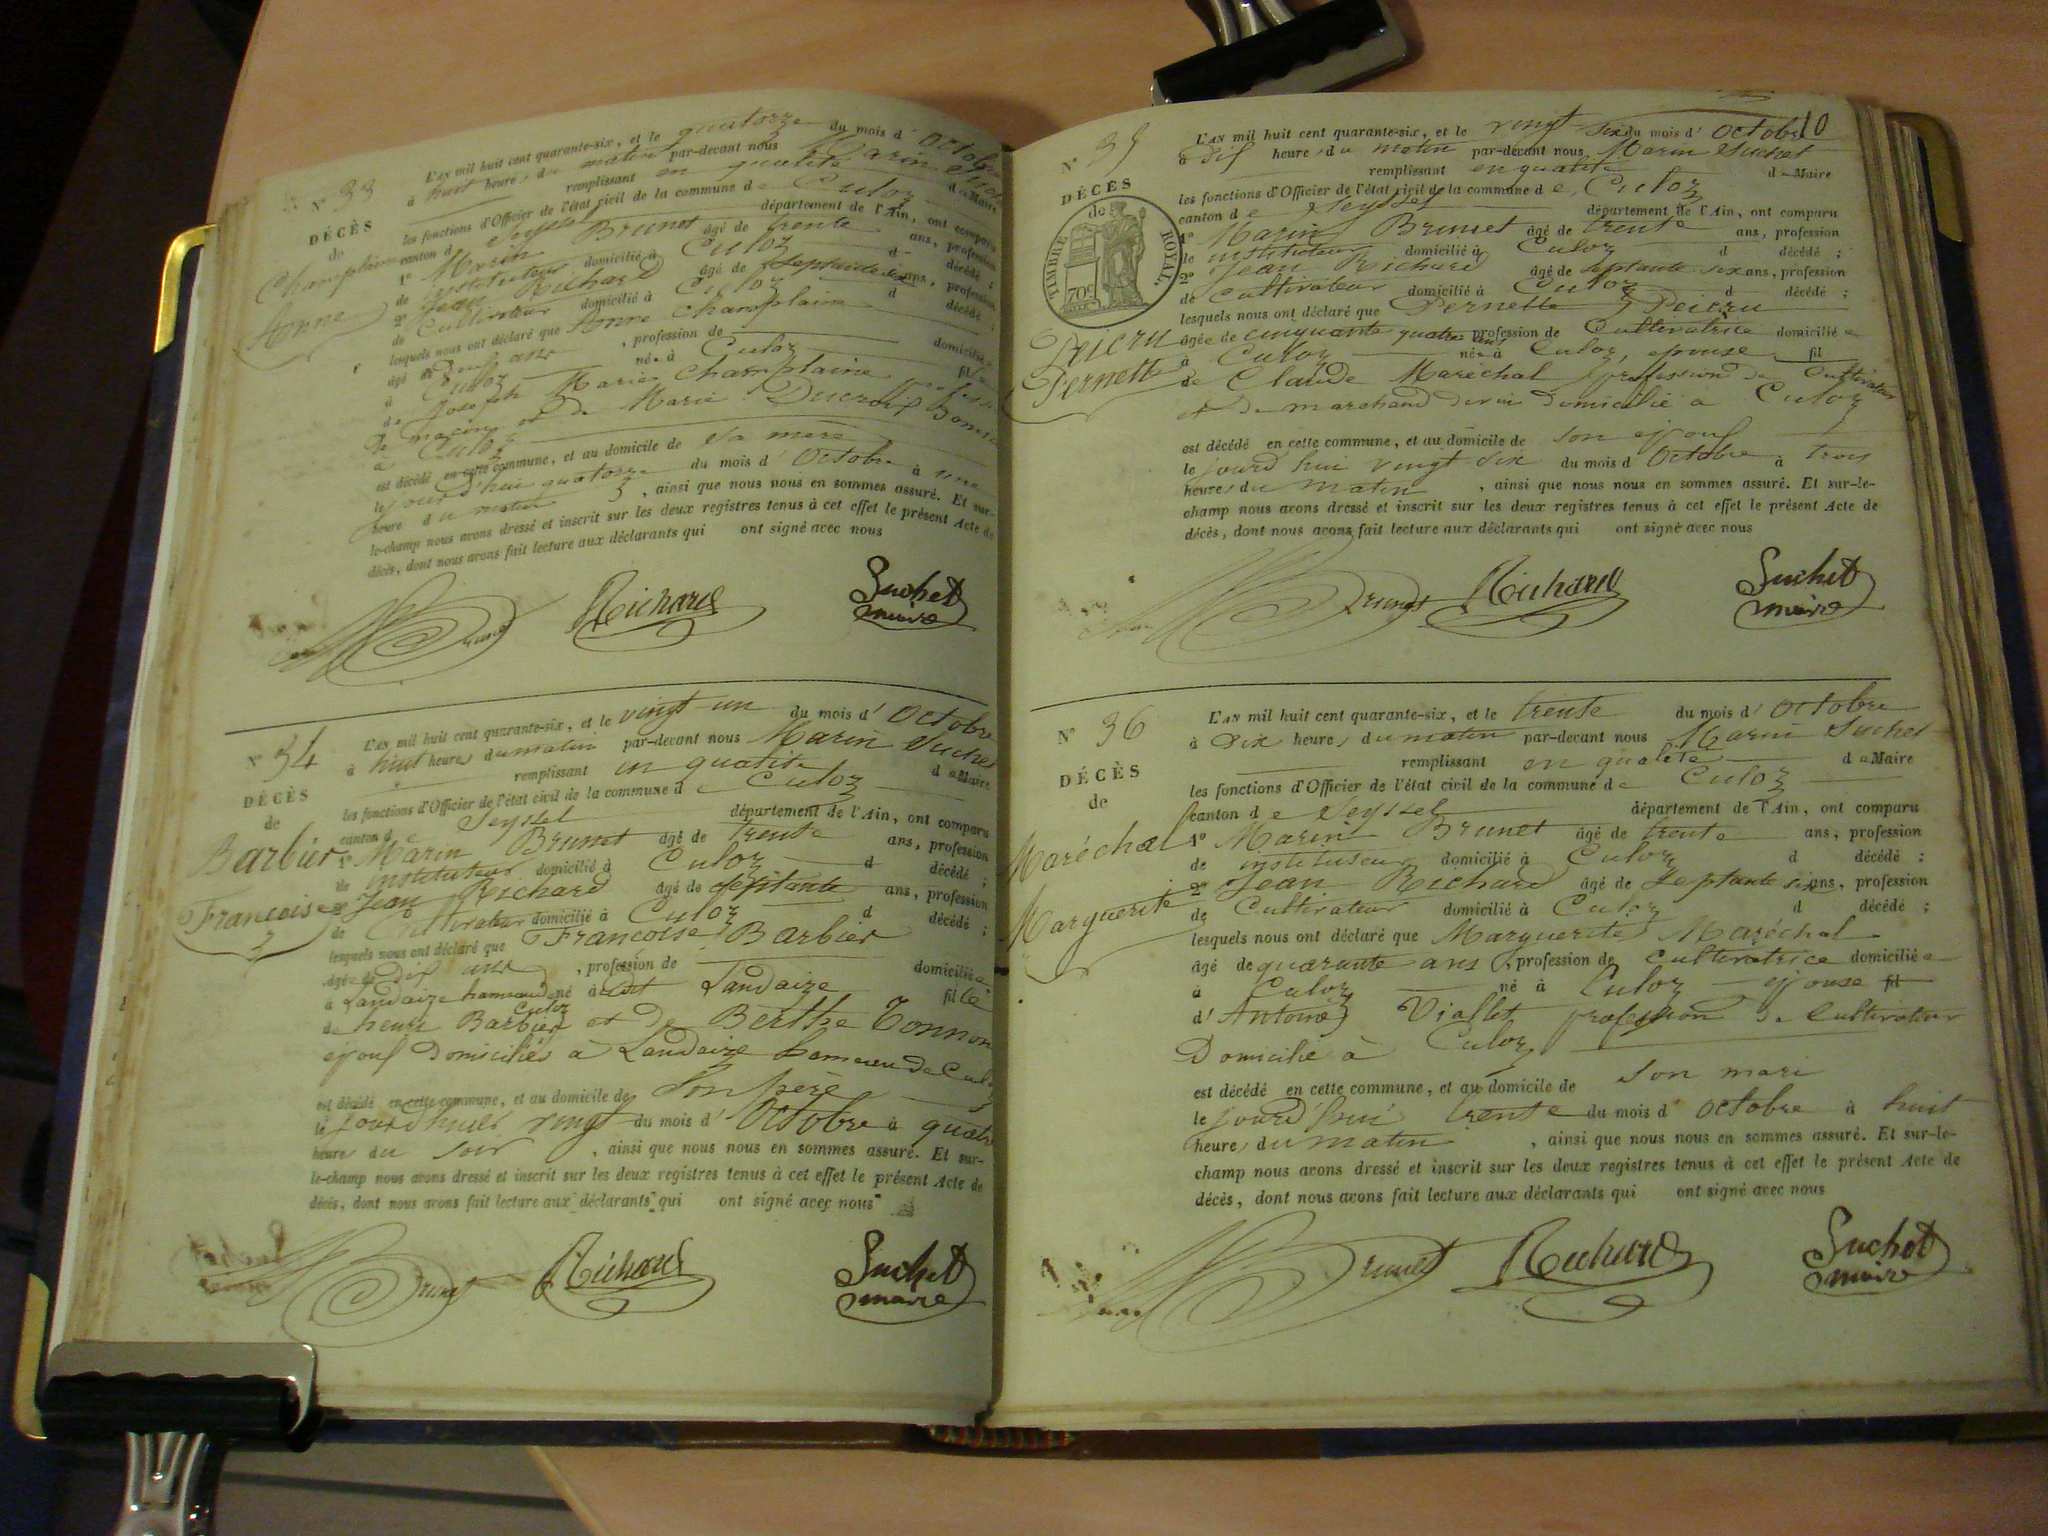 N° 33
DÉCÈS
de
Champlaine
Anne
L'AN mil huit cent quarante-six, et le quatorze du mois d' Octobre
à huit heures du matin par-devant nous Marin Suchet
remplissant en qualité de Maire
les fonctions d'Officier de l'état civil de la commune de Culoz
canton de Seyssel département de l'Ain, ont comparu
1° Marin Brunet âgé de trente ans, profession
de instituteur domicilié à Culoz d décédé ;
2° Jean Richard âgé de septante six ans, profession
de Cultivateur domicilié à Culoz d décédé ;
lesquels nous ont déclaré que Anne Champlaine
âgé d'un ans , profession de domiciliée
à Culoz née à Culoz fille
de Joseph Marie Champlaine profession
de maçon et de Marie Ducroix Domicilié
à Culoz
est décédé en cette commune, et au domicile de sa mère
le jourd'hui quatorze du mois d' Octobre à une
heure du matin , ainsi que nous nous en sommes assuré. Et sur-
le-champ nous avons dressé et inscrit sur les deux registres tenus à cet effet le présent Acte de
décès, dont nous avons fait lecture aux déclarants qui ont signé avec nous
Brunet Richard Suchet
maire
N° 34
DÉCÈS
de
Barbier
Francoise
L'AN mil huit cent quarante-six, et le vingt un du mois d' Octobre
à huit heures du matin par-devant nous Marin Suchet
remplissant en qualité de Maire
les fonctions d'Officier de l'état civil de la commune de Culoz
canton de Seyssel département de l'Ain, ont comparu
1° Marin Brunet âgé de trente ans, profession
de instituteur domicilié à Culoz d décédé ;
2° Jean Richard âgé de septante ans, profession
de Cultivateur domicilié à Culoz d décédé ;
lesquels nous ont déclaré que Francoise Barbier
âgée de dix ans , profession de domiciliée
à Landaize hameau de Culoz né à dit Landaize fille
de henri Barbier et de Berthe Tonnon
epouf Domiciliés à Landaize hameau de Culoz
est décédé en cette commune, et au domicile de son père
le jourd'huit vingt du mois d' Octobre à quatre
heures du soir , ainsi que nous nous en sommes assuré. Et sur-
le-champ nous avons dressé et inscrit sur les deux registres tenus à cet effet le présent Acte de
décès, dont nous avons fait lecture aux déclarants qui ont signé avec nous
Brunet Richard Suchet
maire
10
N° 35
DÉCÈS
de
TIMBRE ROYAL
70c
Peicru
Pernette
L'AN mil huit cent quarante-six, et le vingt six du mois d' Octobre
à dix heures du matin par-devant nous Marin Suchet
remplissant en qualité de Maire
les fonctions d'Officier de l'état civil de la commune de Culoz
canton de Seyssel département de l'Ain, ont comparu
1° Marin Brunet âgé de trente ans, profession
de instituteur domicilié à Culoz d décédé ;
2° Jean Richard âgé de septante six ans, profession
de Cultivateur domicilié à Culoz d décédé ;
lesquels nous ont déclaré que Pernette Peicru
âgée de cinquante quatre ans profession de Cultivatrice domicilié
à Culoz née à Culoz, epouse fil
de Claude Maréchal profession de Cultivateur
et de marchand de vin domicilié à Culoz
est décédé en cette commune, et au domicile de son epouf
le jourd'hui vingt six du mois d Octobre à trois
heures du matin , ainsi que nous nous en sommes assuré. Et sur-le-
champ nous avons dressé et inscrit sur les deux registres tenus à cet effet le présent Acte de
décès, dont nous avons fait lecture aux déclarants qui ont signé avec nous
Brunet Richard Suchet
maire
N° 36
DÉCÈS
de
Maréchal
Marguerite
L'AN mil huit cent quarante-six, et le trente du mois d' Octobre
à Dix heures du matin par-devant nous Marin Suchet
remplissant en qualité de Maire
les fonctions d'Officier de l'état civil de la commune de Culoz
canton de Seyssel département de l'Ain, ont comparu
1° Marin Brunet âgé de trente ans, profession
de instituteur domicilié à Culoz d décédé ;
2° Jean Richard âgé de Septante six ans, profession
de Cultivateur domicilié à Culoz d décédé ;
lesquels nous ont déclaré que Marguerite Maréchal
âgé de quarante ans , profession de cultivatrice domicilié
à Culoz né à Culoz epouse fil
d' Antoine Viallet profession de Cultivateur
Domicilié à Culoz
est décédé en cette commune, et au domicile de son mari
le jourd'hui trente du mois d' octobre à huit
heures du matin , ainsi que nous nous en sommes assuré. Et sur-le-
champ nous avons dressé et inscrit sur les deux registres tenus à cet effet le présent Acte de
décès, dont nous avons fait lecture aux déclarants qui ont signé avec nous
Brunet Richard Suchet
maire